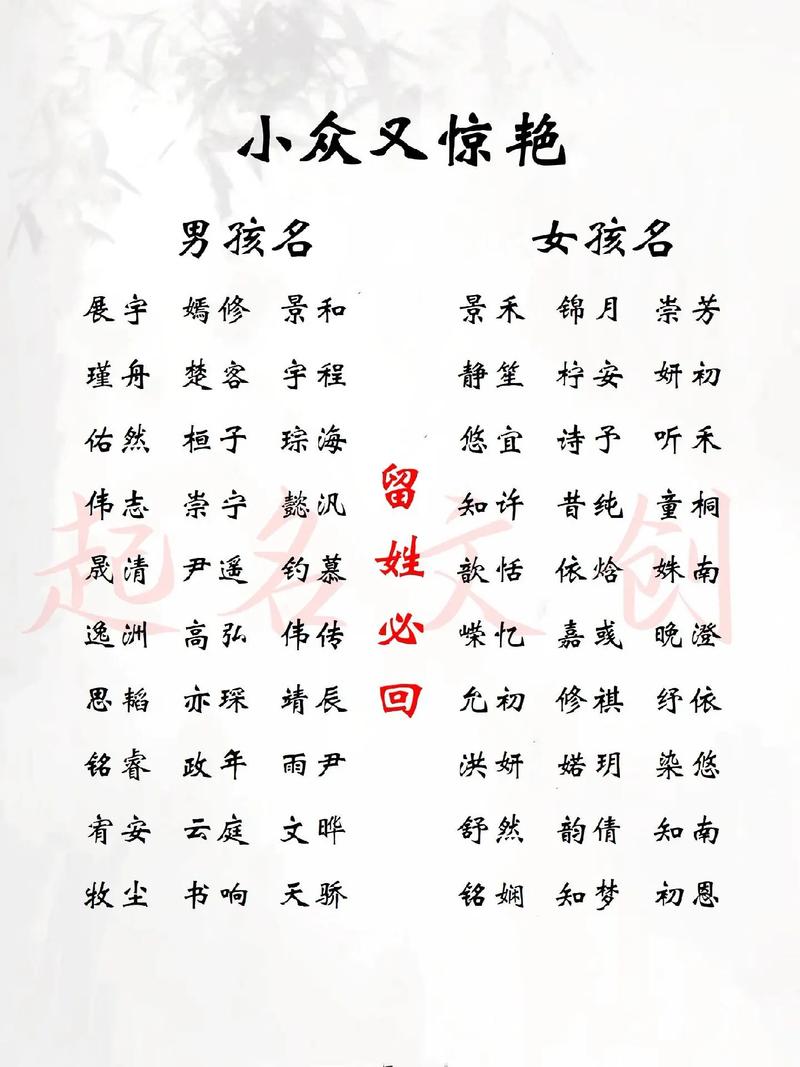 小众又惊艳
男孩名
展宇 嫣修 景和
瑾舟 楚客 宇程
佑然 桓子 琮海
伟志 崇宁 懿汎
晟清 尹遥 钧慕
逸洲 高弘 伟传
思韬 亦琛 靖辰
铭睿 政年 雨尹
宥安 云庭 文晔
牧尘 书响 天骄
留姓必回
女孩名
景禾 锦月 崇芳
静笙 柠安 妍初
悠宜 诗予 听禾
知许 昔纯 童桐
歆恬 依焓 姝南
嵘忆 嘉彧 晚澄
允初 修祺 纾依
洪妍 婼玥 染悠
舒然 韵倩 知南
铭娴 知梦 初恩
起名文创